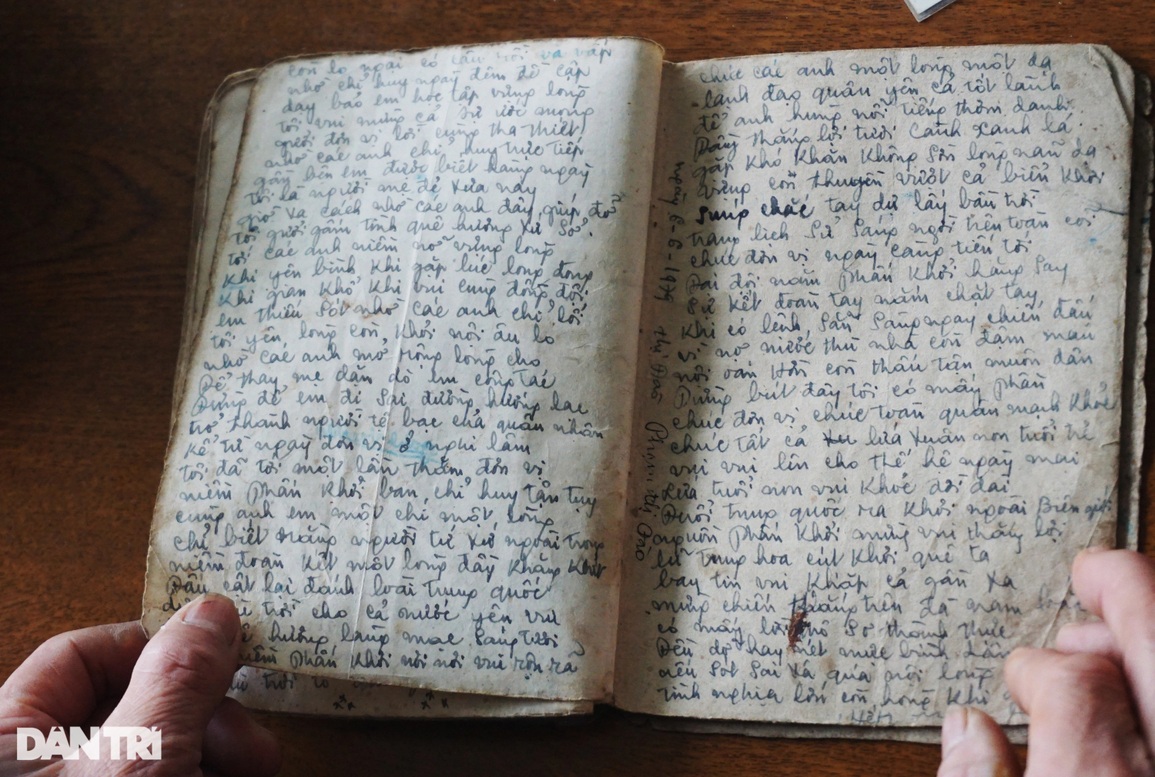 còn lo ngại có câu rồi va vấp
nhờ chỉ huy ngày đêm đề cập
dạy bảo em học tập vững lòng
tôi vui mừng cả sự ước mong
gưởi đơn vị lời cùng tha thiết
nhờ các anh chỉ huy trực tiếp
gần bên em được biết hàng ngày
tôi là người mẹ đẻ xưa nay
giờ xa cách nhờ các anh đây giúp đỡ
tôi gưởi gắm tình quê hương xứ sở
tới các anh niềm nở vững lòng
Khi yên bình Khi gặp lúc long đong
Khi gian Khổ Khi vui cùng đồng đội
em thiếu Sót nhờ các anh chỉ lối
tôi yên lòng còn Khỏi nỗi âu lo
nhờ các anh mở rộng lòng cho
Để thay mẹ dặn dò em công tác
Đừng để em đi Sai đường hướng lạc
trở thành người tệ bạc chả quân nhân
Kể từ ngày đơn vị ở nghi lâm
tôi đã tới một lần thăm đơn vị
niềm phấn Khởi ban chỉ huy tận tụy
cùng anh em một chí một lòng
chỉ biết rằng người tứ xứ ngoài trong
niềm đoàn Kết một lòng đầy Khăng Khít
Đâu cắt hai đánh loài trung quốc
trời cho cả nước yên vui
hương làng mạc Sáng tươi
niềm phấn Khởi nơi nơi vui rộn rã
chúc các anh một lòng một dạ
lãnh đạo quân yên cả tốt lành
để anh hùng nổi tiếng thơm danh
Đầy thắng lợi tươi cành xanh lá
gặp Khó Khăn Không Sờn lòng nản dạ
vững còn thuyền vượt cả biển Khơi
Súng chắc tay dư lấy bầu trời
trang lịch Sử Sáng ngời trên toàn cõi
chúc đơn vị ngày càng tiến tới
Đại đội năm phấn Khởi hăng Say
Sự Kết đoàn tay nắm chặt tay
Khi có lệnh Sẵn Sàng ngay chiến đấu
Vì nợ nước thù nhà còn đẫm máu
nỗi oán hờn còn thấu tận muôn dân
Dừng bút đây tôi có mấy phần
chúc đơn vị chúc toàn quân mạnh Khỏe
chúc tất cả lứa xuân non tuổi trẻ
vui vui lên cho thế hệ ngày mai
Lứa tuổi non vui Khỏe dời dai
Đuổi trung quốc ra Khỏi ngoài Biên giới
nguồn phấn Khởi mừng vui thắng lợi
lũ trung hoa cút Khỏi quê ta
bay tin vui Khắp cả gần xa
mừng chiến thắng trên đã năm
có mấy lời thô Sơ thành thực
Đến độ hay hết mức bình
nếu Sót Sai xá quá nới lòng
tình nghĩa lớn còn hòng Khi
ngày 6-6-1979 thị Đào Phạm thị Đào
DÂN TRÍ